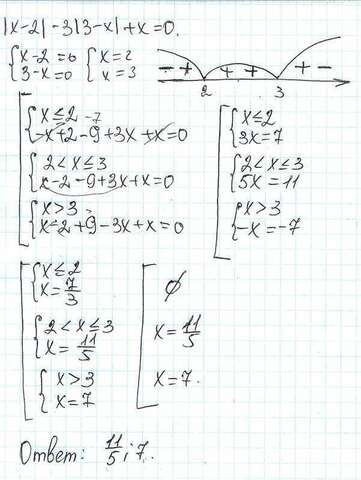 |x-2| - 3|3-x| + x = 0.
{ x-2=0 { x=2 - + + + + -
{ 3-x=0 { x=3 2 3
[ { x ≤ 2 -7
{ -x+2-9+3x+x=0
{ 2 < x ≤ 3
{ x-2-9+3x+x=0
{ x > 3
{ x-2+9-3x+x=0
[ { x ≤ 2
{ 3x=7
{ 2 < x ≤ 3
{ 5x=11
{ x > 3
{ -x=-7
[ { x ≤ 2
{ x = 7/3
{ 2 < x ≤ 3
{ x = 11/5
{ x > 3
{ x = 7
[ ∅
x = 11/5
x = 7.
Ответ: 11/5; 7.